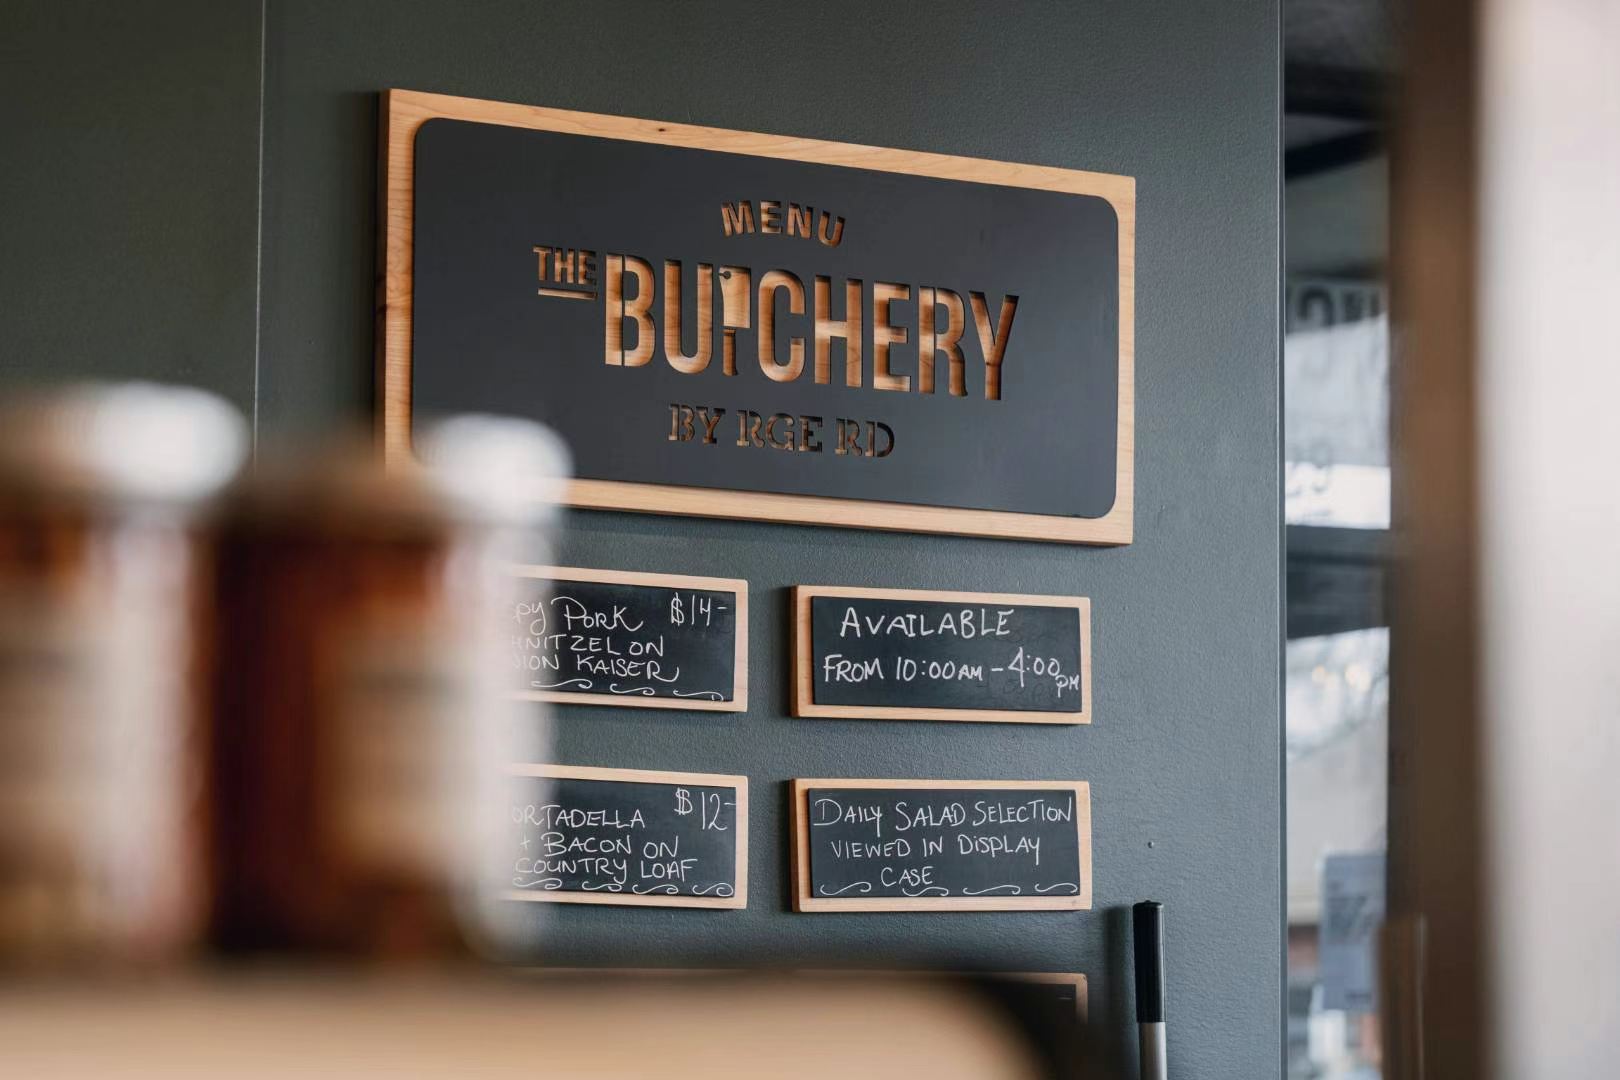 MENU
THE BUTCHERY
BY RGE RD
PORK $14-
ON
KAISER
AVAILABLE
FROM 10:00AM - 4:00PM
$12-
+ BACON ON
COUNTRY LOAF
DAILY SALAD SELECTION
VIEWED IN DISPLAY
CASE